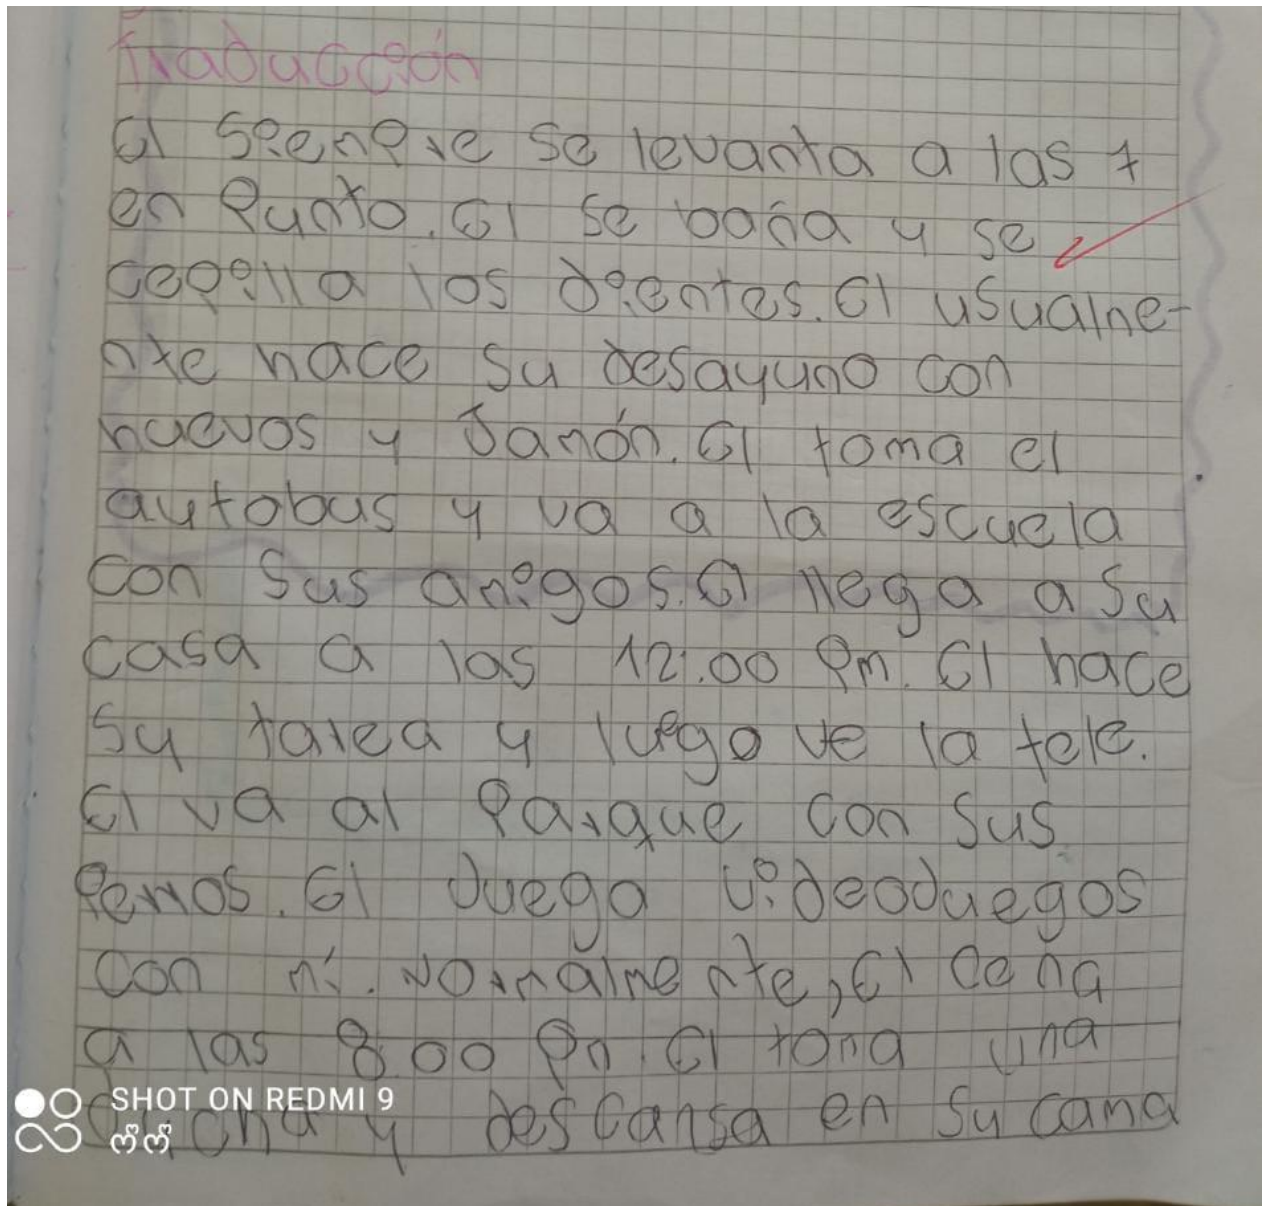 Traducción
El siempre se levanta a las 7
en punto. El se baña y se
cepilla los dientes. El usualme-
nte hace su desayuno con
huevos y Jamón. El toma el
autobus y va a la escuela
con sus amigos. El llega a su
casa a las 12:00 pm. El hace
su tarea y luego ve la tele.
El va al parque con sus
perros. El Juega videoJuegos
con mí. Normalmente, El cena
a las 8:00 pm. El toma una
ducha y descansa en su cama
SHOT ON REDMI 9